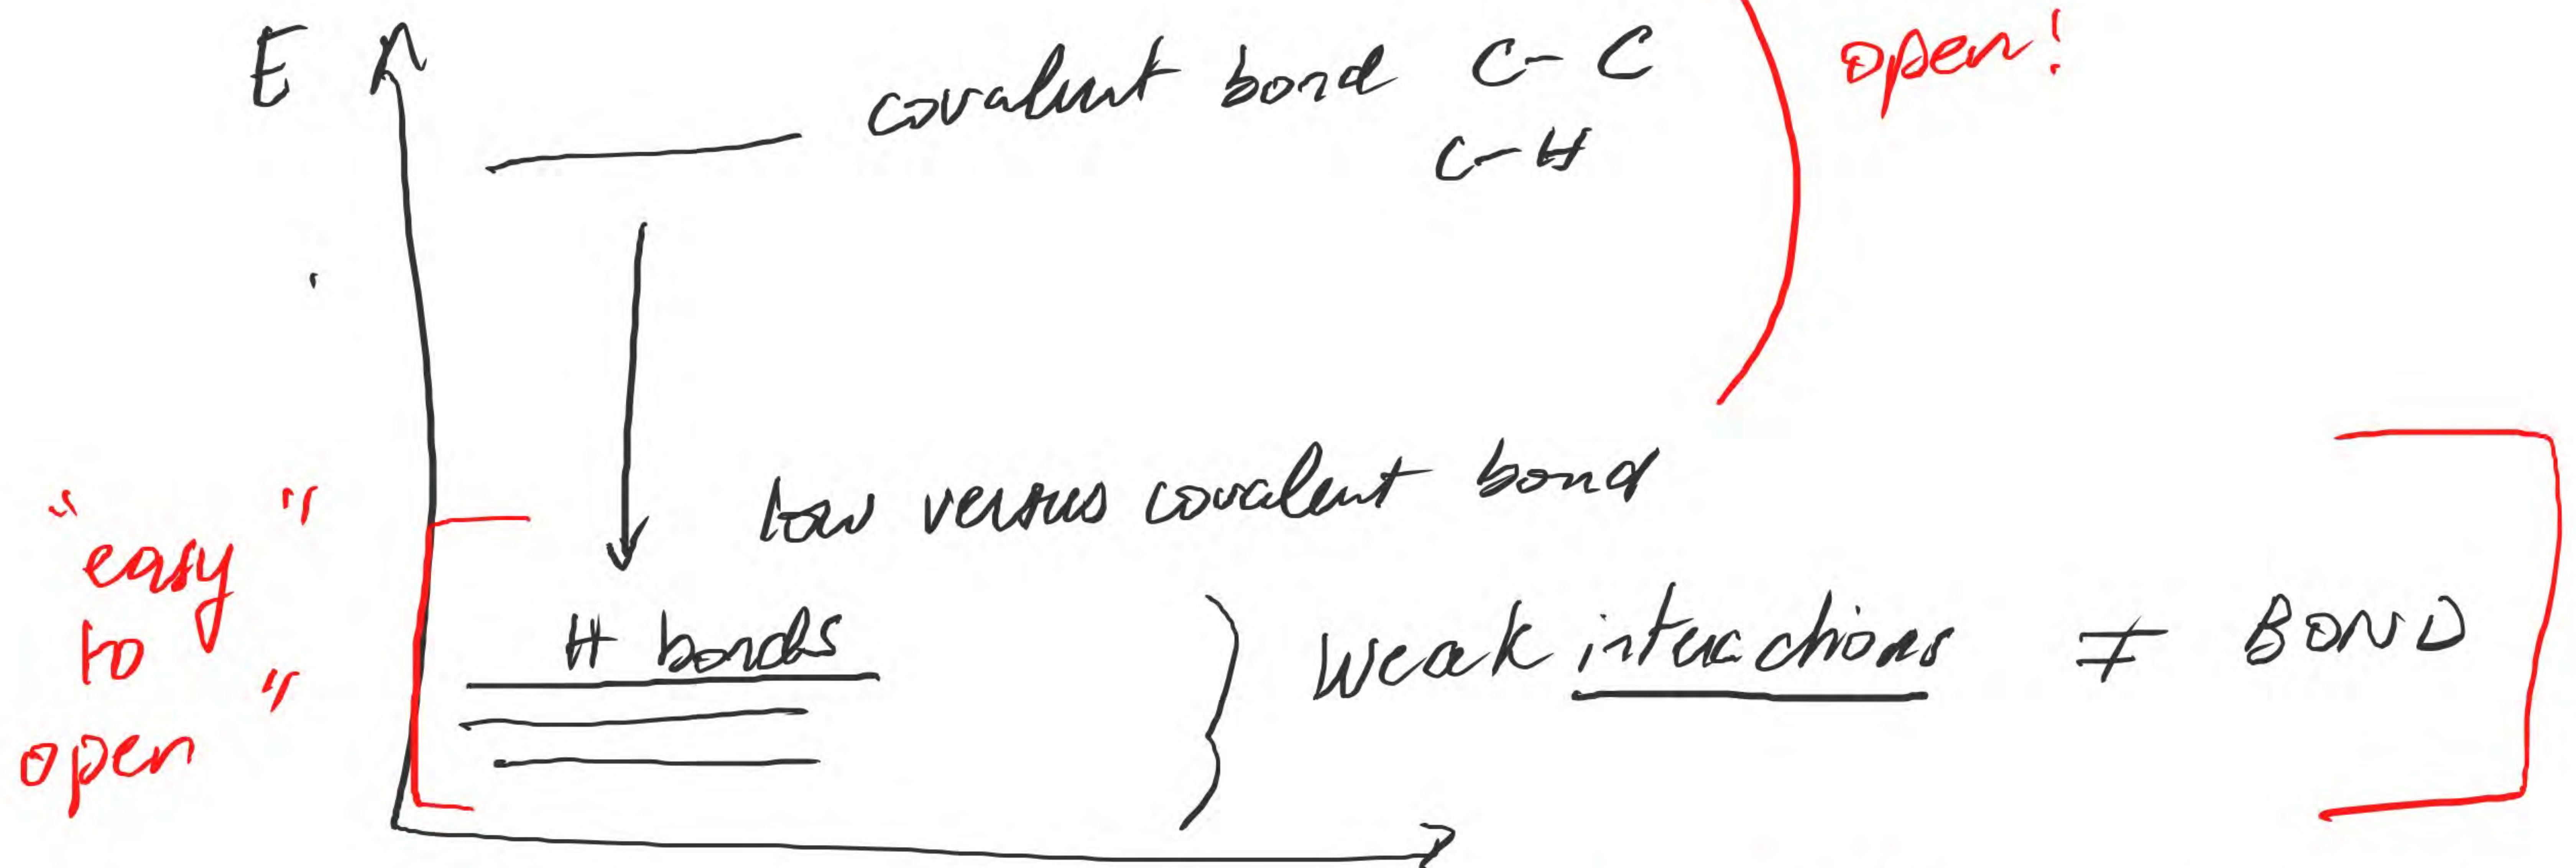 E
covalent bond C-C
C-H
open!
low versus covalent bond
"easy"
to
open"
H bonds
weak interactions ≠ BOND